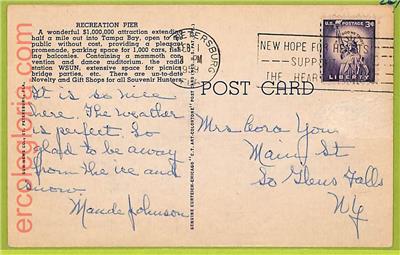 RECREATION PIER
A wonderful $1,000,000 attraction extending
half a mile out into Tampa Bay, open to the
public without cost, providing a pleasant
promenade, parking space for 1,000 cars, fishing
balconies. Containing a mammoth con-
vention and dance auditorium, the radio
station WSUN, extensive space for picnics,
bridge parties, etc. There are up-to-date
Novelty and Gift Shops for all Souvenir Hunters.
It is so nice
here. The weather
is perfect. So
glad to be away
from the ice and
snow.
Maude Johnson
PETERSBURG
PM
NEW HOPE FOR HEARTS
SUPPORT
THE HEART
U.S. POSTAGE 3¢
LIBERTY
POST CARD
Mrs Cora
Main St
So Glens Falls
NY
GENUINE CURTEICH-CHICAGO "C.T. ART-COLORTONE" POST CARD
ercologi